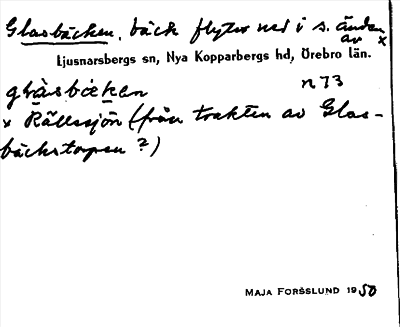 Glasbäcken, bäck flyter ned i s. änden
av x
Ljusnarsbergs sn, Nya Kopparbergs hd, Örebro län.
n 73
x Rällssjön (från trakten av Glas-
bäckstorpen ?)
MAJA FORSSLUND 1950